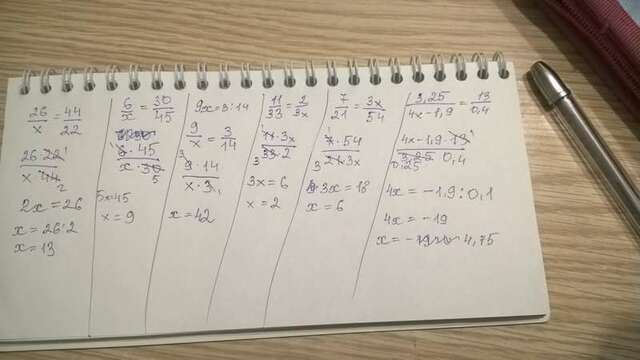 26/x = 44/22
26·22/x·44 2
2x = 26
x = 26:2
x = 13
6/x = 30/45
6·45/x·30 5
5x=45
x = 9
9x=3:14
9/x = 3/14
3 9·14/x·3 1
x = 42
11/33 = 2/3x
1 11·3x/3 33·2
3x = 6
x = 2
7/21 = 3x/54
1 7·54/3 21·3x
3x = 18
x = 6
3,25/4x-1,9 = 13/0,4
4x-1,9·13 1/3,25 0,4
0,25
4x = -1,9:0,1
4x = -19
x = - 4,75